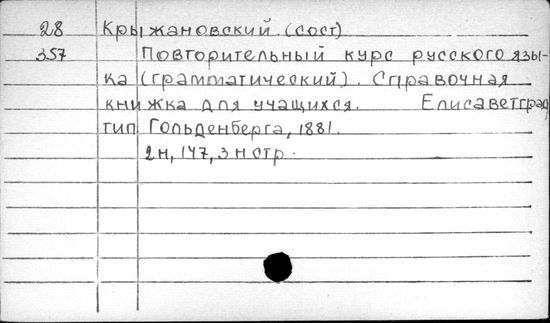 28 Крыжановский. (сост)
357 Повторительный курс русского язы-
ка (грамматический). Справочная
книжка для учащихся. Елисаветград
тип. Гольденберга, 1881.
2н, 147, 3н стр.